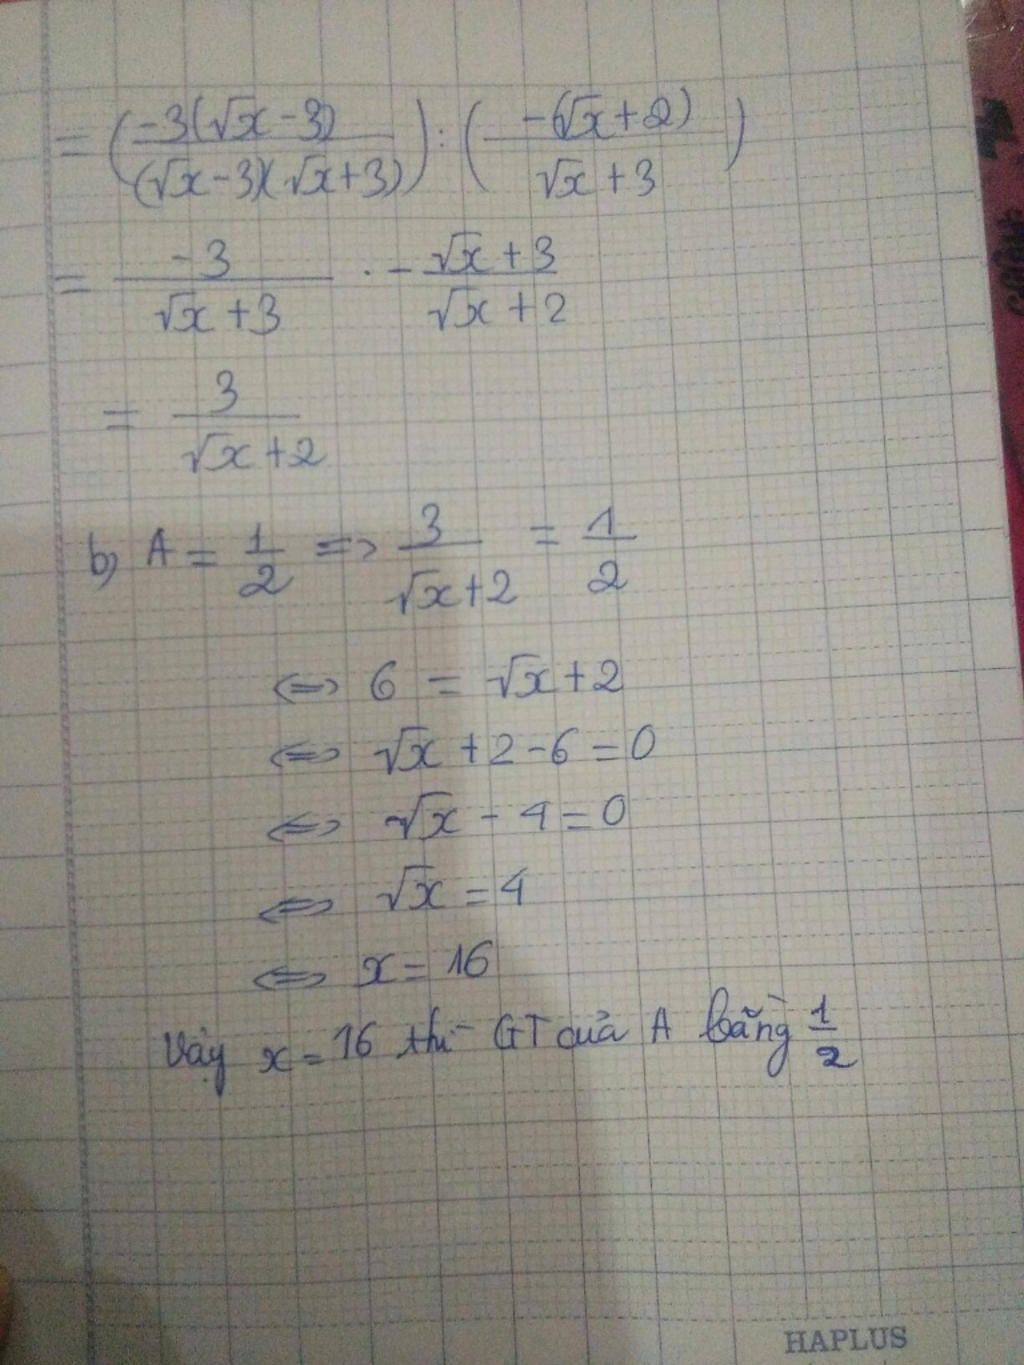 = (-3(√x -3) / (√x-3)(√x+3)) : (-(√x+2) / √x +3)
= -3 / √x +3 . - √x +3 / √x +2
= 3 / √x +2
b) A = 1/2 => 3 / √x+2 = 1/2
<=> 6 = √x+2
<=> √x +2 -6 =0
<=> √x - 4 =0
<=> √x =4
<=> x = 16
Vậy x = 16 thì GT của A bằng 1/2
HAPLUS